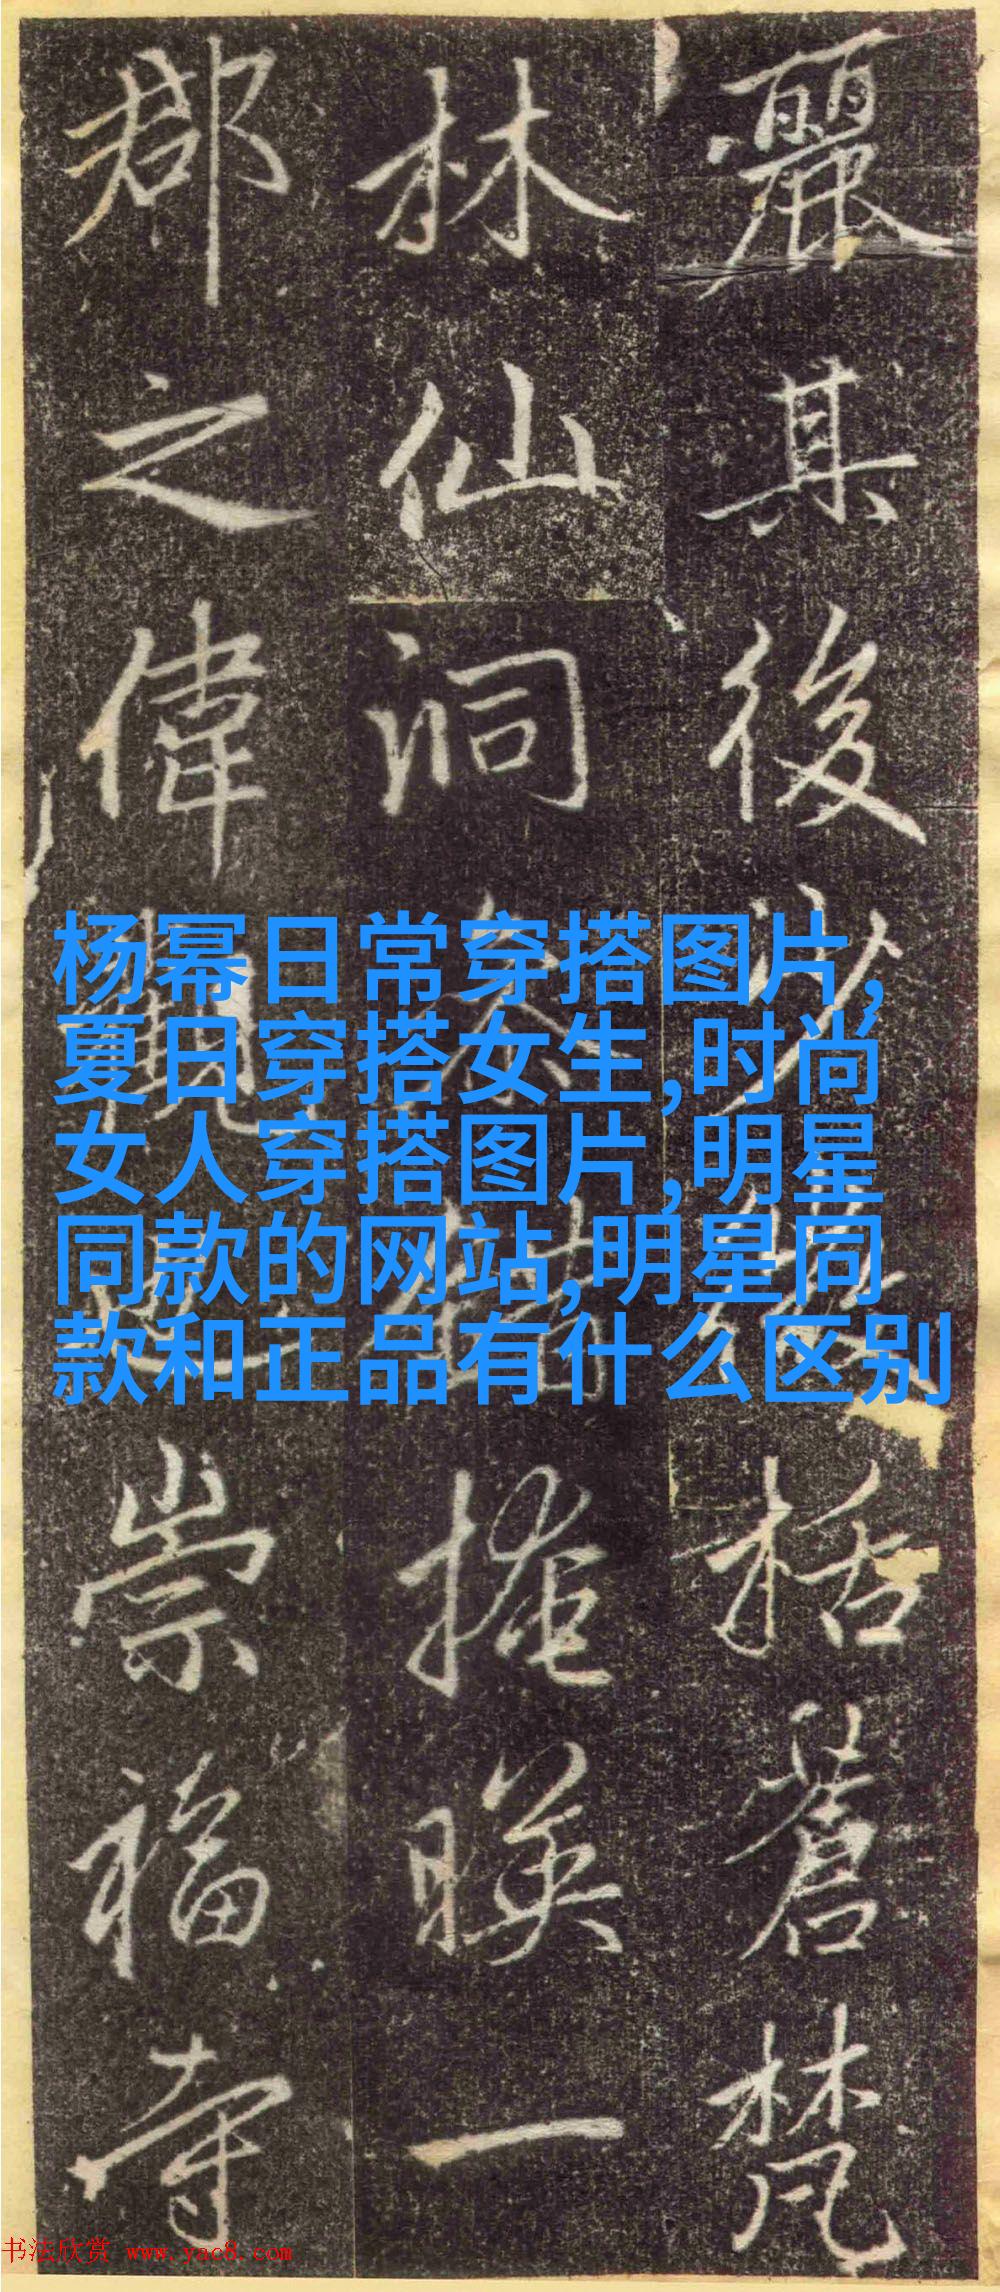 麗其後括蒼梵
林仙洞掩暎一
郡之偉觀崇福寺
杨幂日常穿搭图片,
夏日穿搭女生,时尚
女人穿搭图片,明星
同款的网站,明星同
款和正品有什么区别
书法欣赏 www.yac8.com